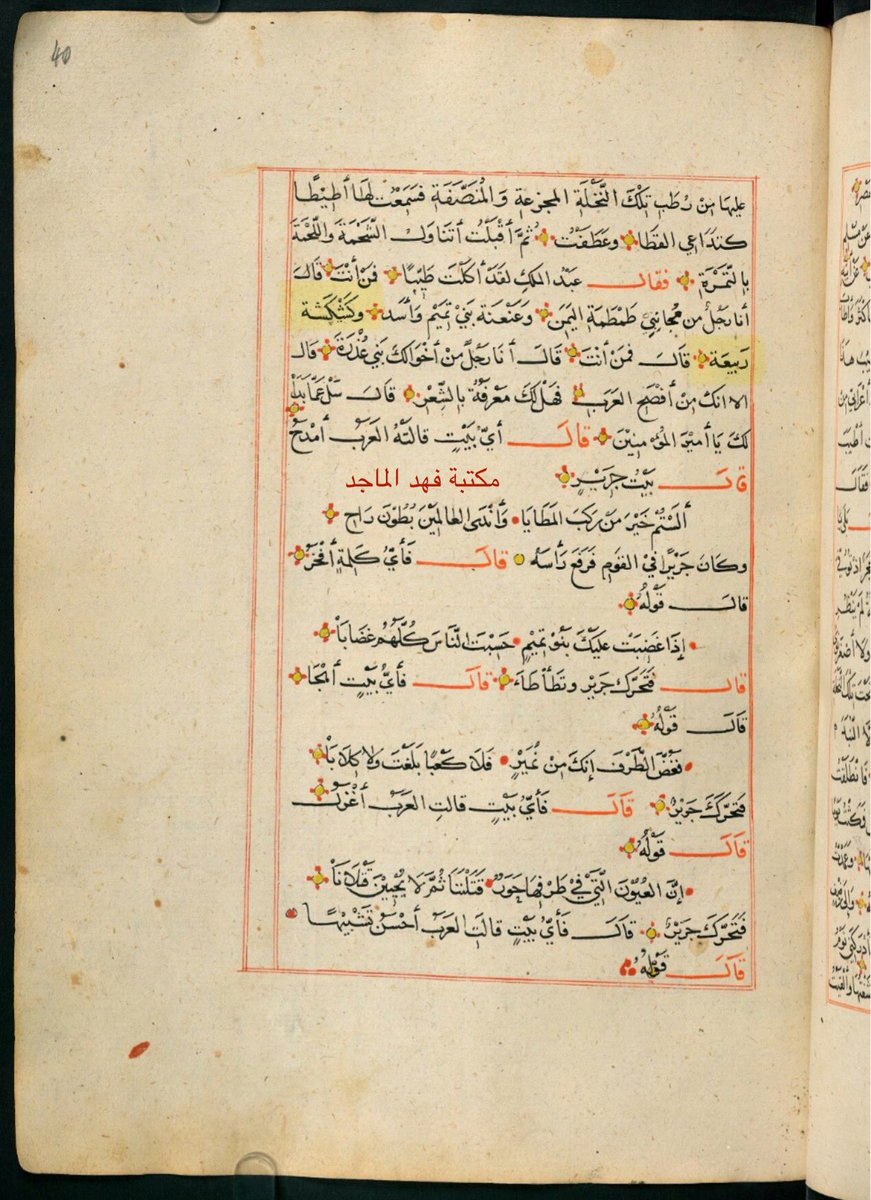 40
عليها من رُطَبِ تِلْكَ النَّخْلَةِ المجزعة وَالْمُنَصَّفَةِ فسَمِعْتُ لهَا أَطِيْطًا
كتداعي القَطَا وعَطَفْتُ ثُمَّ أقْبَلْتُ أتَناوَلُ الشَّحْمَةَ وَاللَّحْمَةَ
بِالتَّمْرَةِ فقال عَبْدُ الملك لقَدْ أكَلْتَ طَيِّبًا فمَنْ أنْتَ قَالَ
أنا رَجُلٌ من مُجانِبي طَمْطَمَةِ اليَمَنِ وَعَنْعَنَة بَنِيْ تَمِيْمٍ وَأسَد وكَشْكَشَة
رَبِيْعَة قالَ فمَنْ أنْتَ قَالَ أنا رَجُلٌ مِنْ أخْوَالِكَ بَنِي عُذْرَة قال
الا انك مِنْ أفصَحِ العَرَبِ فَهَلْ لَكَ مَعْرِفَةٌ بِالشِّعْرِ قَالَ سَلْ عَمَّا بَدَا
لَكَ يَا أمِيْرَ المؤمنِيْنَ قالَ أيُّ بَيْتٍ قالتْهُ العَرَبُ أمْدَحُ
قالَ بَيْتُ جَرِيْرٍ
مكتبة فهد الماجد
ألَسْتُمْ خَيْرَ مَنْ رَكِبَ المَطَايَا وَأنْدَى العَالمِيْنَ بُطُوْنَ رَاحِ
وكانَ جَرِيْرًا فِي القَومِ فَرَفَعَ رَأسَهُ قالَ فأيُّ كلِمَةٍ أفْخَرُ
قالَ قَوْلُهُ
إذَا غَضِبَتْ عَلَيْكَ بَنُوْ تَمِيْمٍ حَسِبْتَ النَّاسَ كُلَّهُمْ غَضَابَا
قال فَتَحَرَّكَ جَرِيْر وتطَأطَاءَ قالَ فَأيُّ بَيْتٍ أهْجَا
قالَ قَوْلُهُ
فَغُضَّ الطَّرْفَ إنَّكَ مِنْ نُمَيْرٍ فَلَا كَعْبًا بَلَغْتَ وَلا كِلَابَا
فَتَحَرَّكَ جَرِيْرٌ قَالَ فَأيُّ بَيْتٍ قالتِ العَرَبُ أغْزَلُ
قَالَ قَوْلُهُ
إنَّ العُيُوْنَ الَّتِيْ فِي طَرْفِهَا حَوَرٌ قَتَلْنَنَا ثُمَّ لَا يُحْيِيْنَ قَتْلَانَا
فَتَحَرَّكَ جَرِيْرٌ قالَ فَأيُّ بَيْتٍ قالَتِ العَرَبُ أحْسَنُ تَشْبِيْهًا
قَالَ قَوْلُهُ